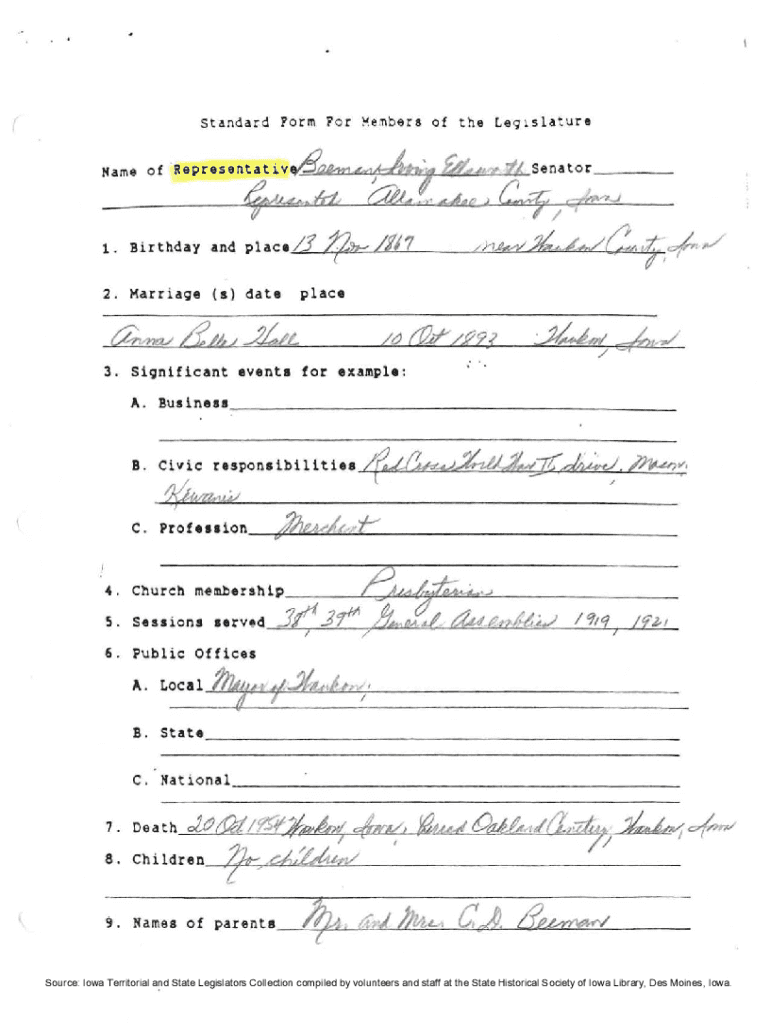 Standard Form For Members of the Legislature
Name of Representative Beeman, Irving Ellsworth Senator
Represented Allamakee County, Iowa
1. Birthday and place 13 Nov 1867 near Waukon County, Iowa
2. Marriage (s) date place
Anna Belle Hall 10 Oct 1893 Waukon, Iowa
3. Significant events for example:
A. Business
B. Civic responsibilities Red Cross World War II drive, Mason,
Kiwanis
C. Profession Merchant
4. Church membership Presbyterian
5. Sessions served 38th, 39th General Assemblies 1919, 1921
6. Public Offices
A. Local Mayor of Waukon;
B. State
C. National
7. Death 20 Oct 1954 Waukon, Iowa, Oakland Cemetery, Waukon, Iowa
8. Children No children
9. Names of parents Mr. and Mrs. C. D. Beeman
Source: Iowa Territorial and State Legislators Collection compiled by volunteers and staff at the State Historical Society of Iowa Library, Des Moines, Iowa.